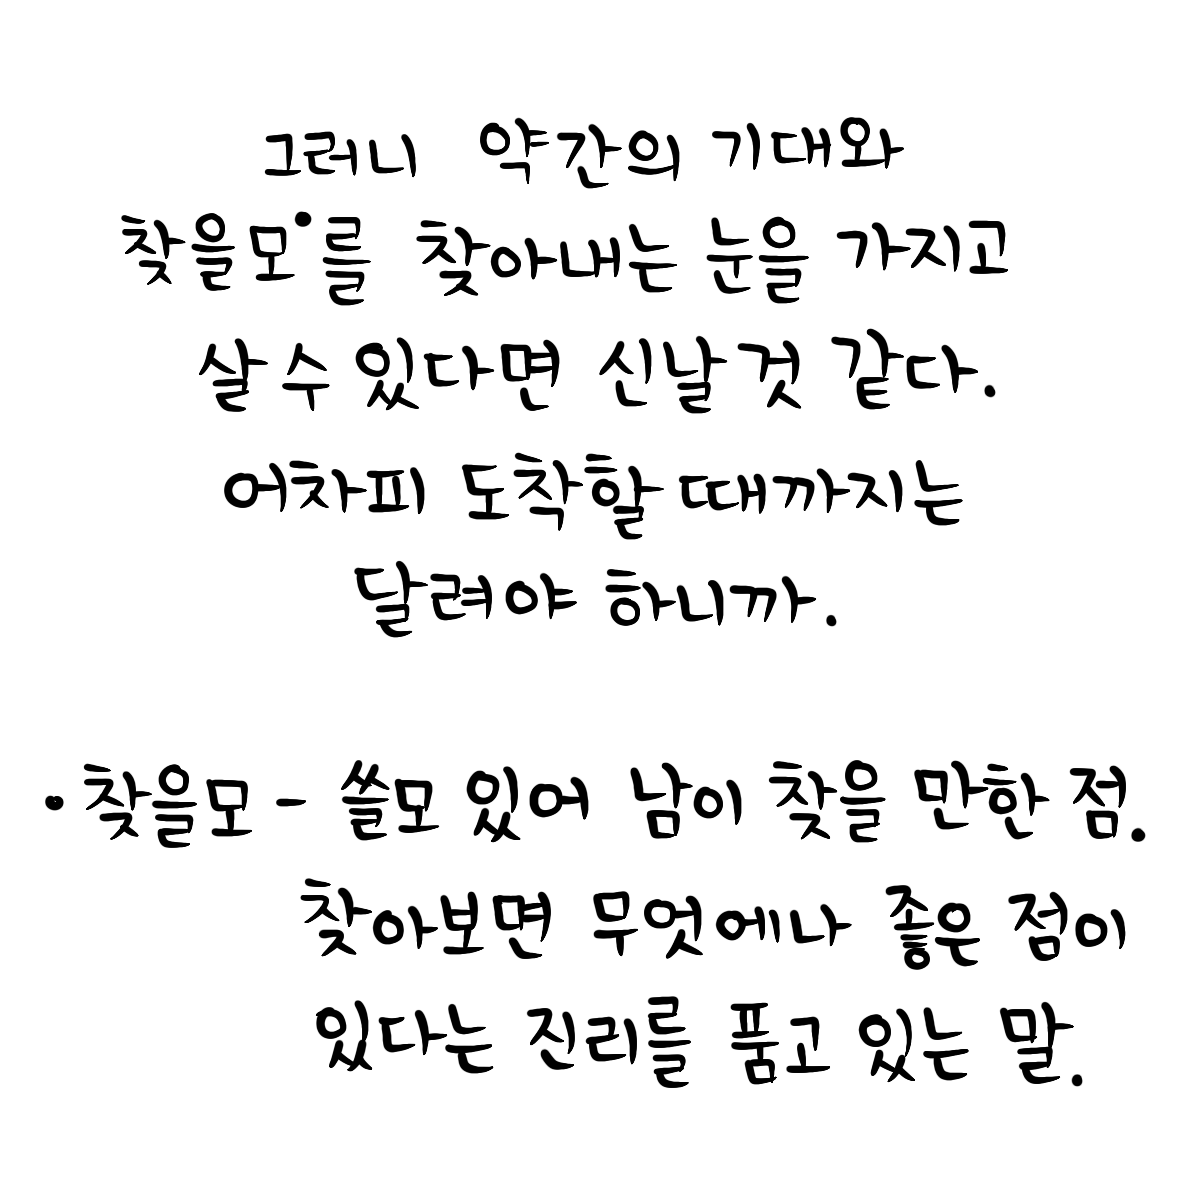 그러니 약간의 기대와
찾을모•를 찾아내는 눈을 가지고
살 수 있다면 신날 것 같다.
어차피 도착할 때까지는
달려야 하니까.
• 찾을모 - 쓸모 있어 남이 찾을 만한 점.
찾아보면 무엇에나 좋은 점이
있다는 진리를 품고 있는 말.